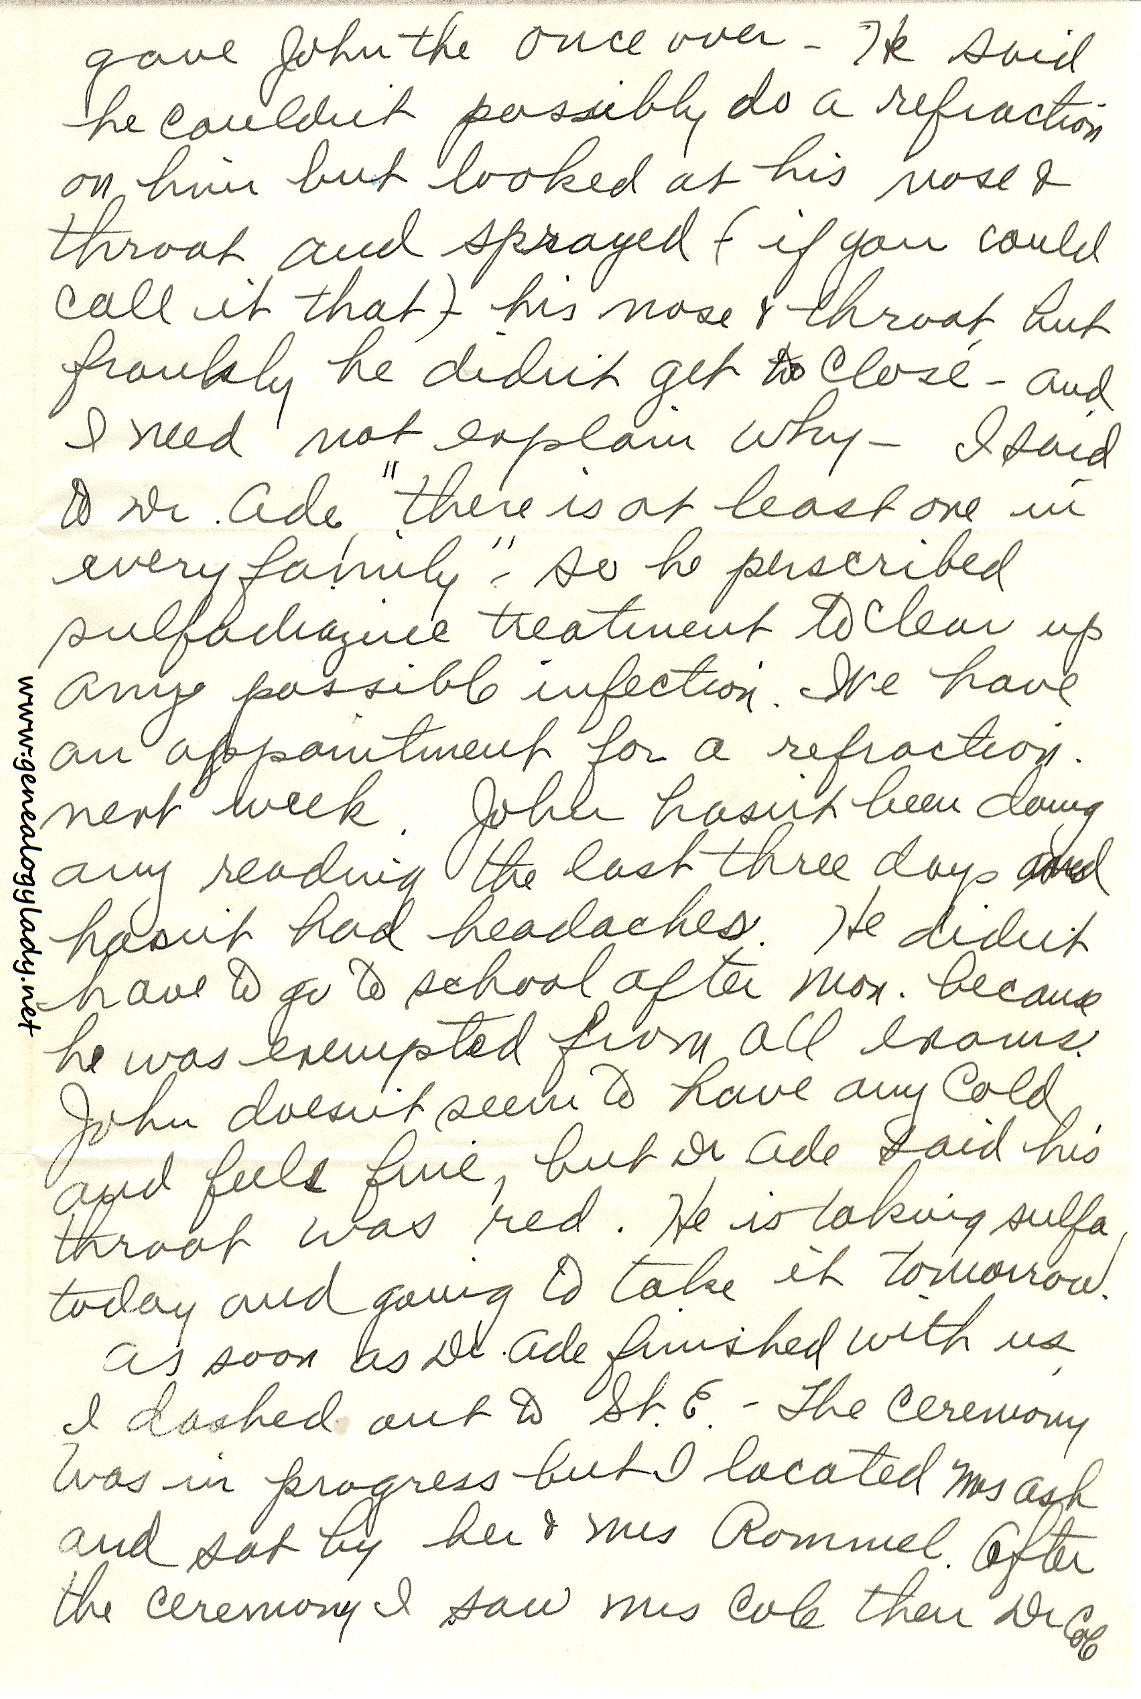 gave John the once over - He said
he couldn't possibly do a refraction
on him but looked at his nose &
throat and sprayed (if you could
call it that) his nose & throat, but
frankly he didn't get to close - and
I need not explain why - I said
to Dr. Ade, "there is at least one in
every family". So he perscribed
sulfadiazine treatment to clear up
any possible infection. We have
an appointment for a refraction.
next week. John hasn't been doing
any reading the last three days and
hasn't had headaches. He didn't
have to go to school after Mon. because
he was exempted from all exams.
John doesn't seem to have any cold
and feels fine, but Dr Ade said his
throat was red. He is taking sulfa
today and going to take it tomorrow.
As soon as Dr. Ade finished with us,
I dashed out to St. E. - The ceremony
was in progress but I located Mrs Ash
and sat by her & Mrs Rommel. After
the ceremony I saw Mrs Cole then Dr Cole
www.genealogylady.net